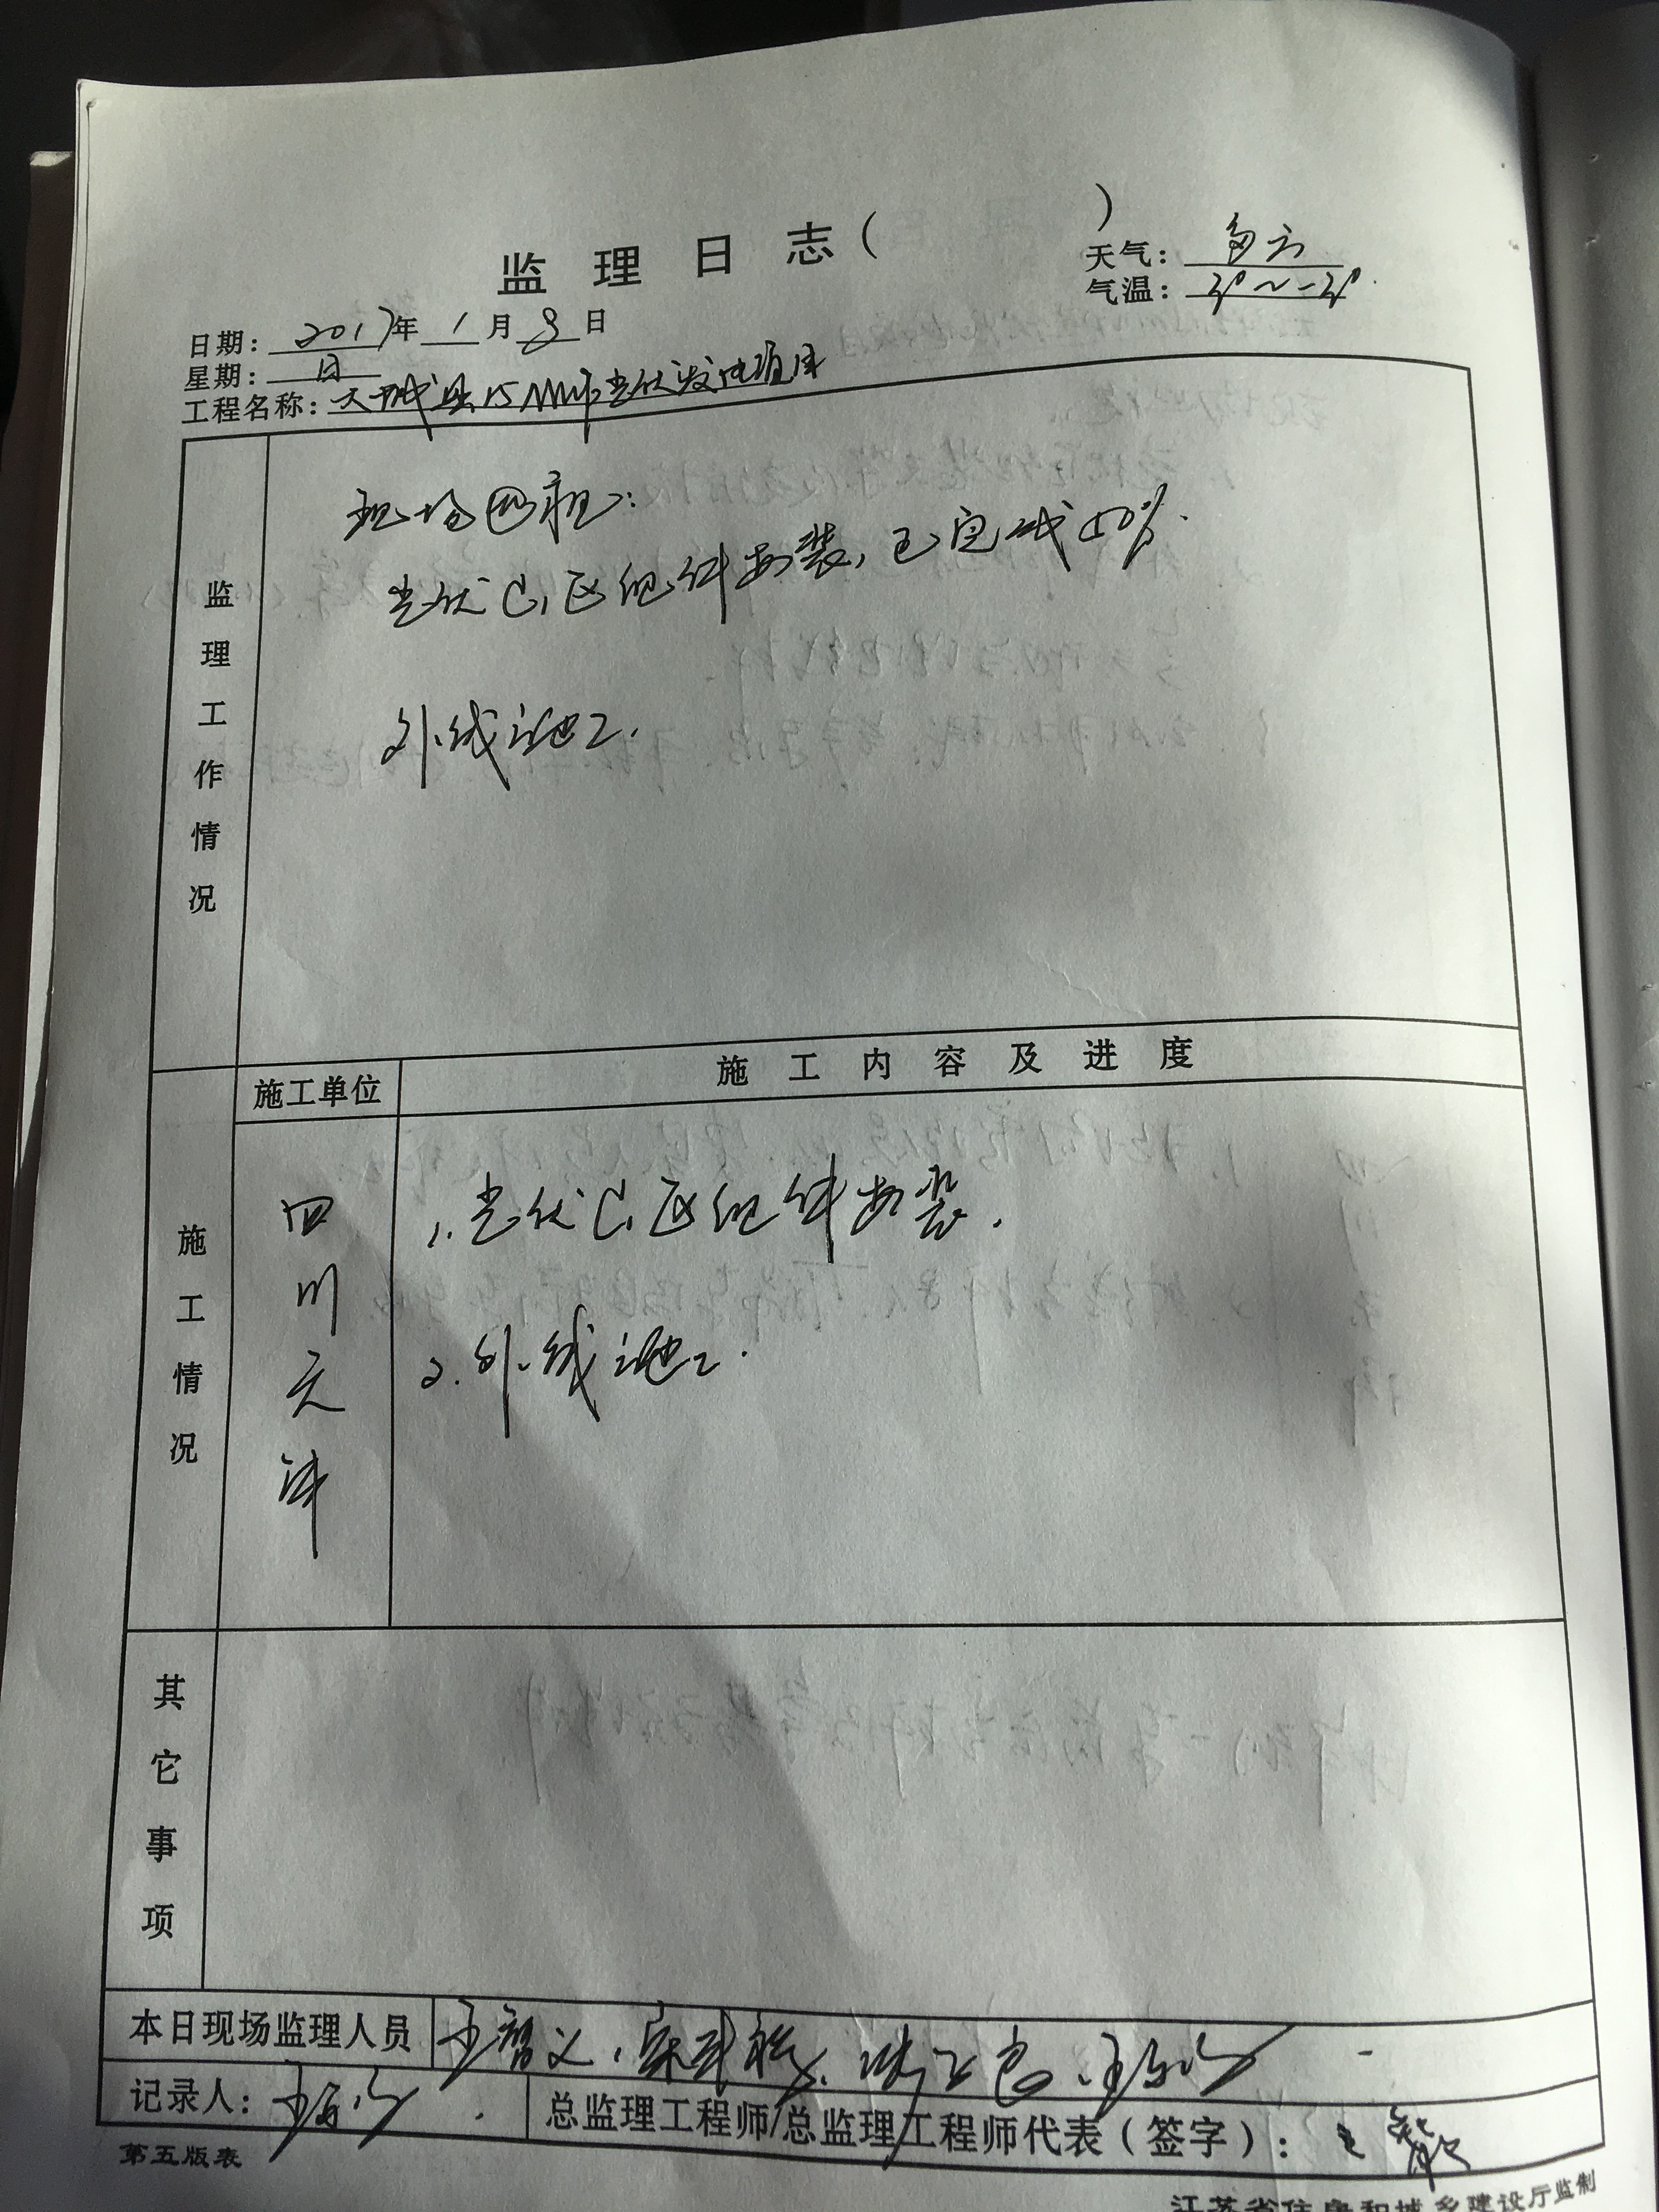 监理日志( )
天气：多云
气温：3°～-3°
日期：2017年1月8日
星期：日
工程名称：天城县15MWp光伏发电项目
监理工作情况
现场巡视：
光伏C1区组件安装，已完成50%.
外线施工.
施工单位 施工内容及进度
施工情况
四川天沣
1.光伏C1区组件安装.
2.外线施工.
其它事项
本日现场监理人员
记录人：
总监理工程师/总监理工程师代表（签字）：
第五版表
江苏省住房和城乡建设厅监制